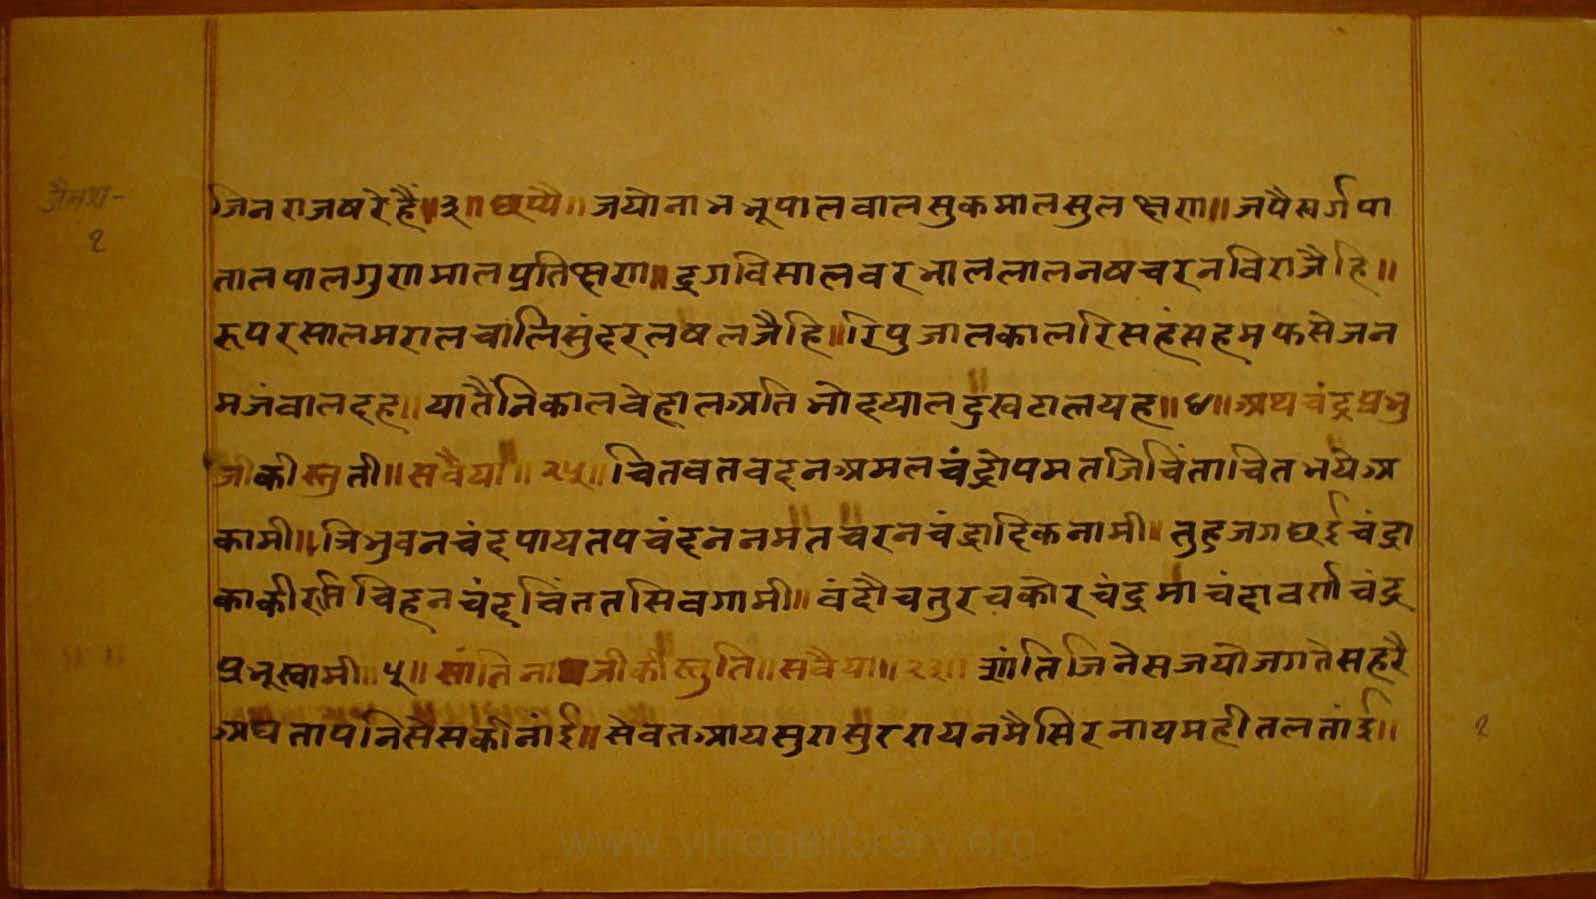 जैनश-
१
जिनराजषरेहैं॥३॥छप्पै॥जयोनाभभूपालवालसुकमालसुलक्षण॥जपैसर्गपा
तालपालगुणमालप्रतिक्षण॥द्रगविसालवरभाललालनषचरनविराजैहि॥
रूपरसालमरालचालिसुंदरलषलजैहि॥रिपुजालकालरिसहंसहमफसेजन
मजंवालदह॥यातैंनिकालवेहालअतिभोदयालदुखटालयह॥४॥अथचंद्रप्रभु
जीकीस्तुती॥सवैया॥२५॥चितवतवदनअमलचंद्रोपमतजिचिंताचितभयेअ
कामी॥त्रिभुवनचंदपायतपचंदननमतचरनचंद्रादिकनामी॥तुहजगछईचंद्रा
काकीरतिचिहनचंदचिंततसिवगामी॥वंदौचतुरचकोरचंद्रमाचंदावर्णचंद्र
प्रभूस्वामी॥५॥सांतिनाथजीकीस्तुति॥सवैया॥२३॥शांतिजिनेसजयोजगतेसहरै
अघतापनिसेसकीनांई॥सेवतआयसुरासुररायनमैसिरनायमहीतलतांई॥
१
www.vitragelibrary.org